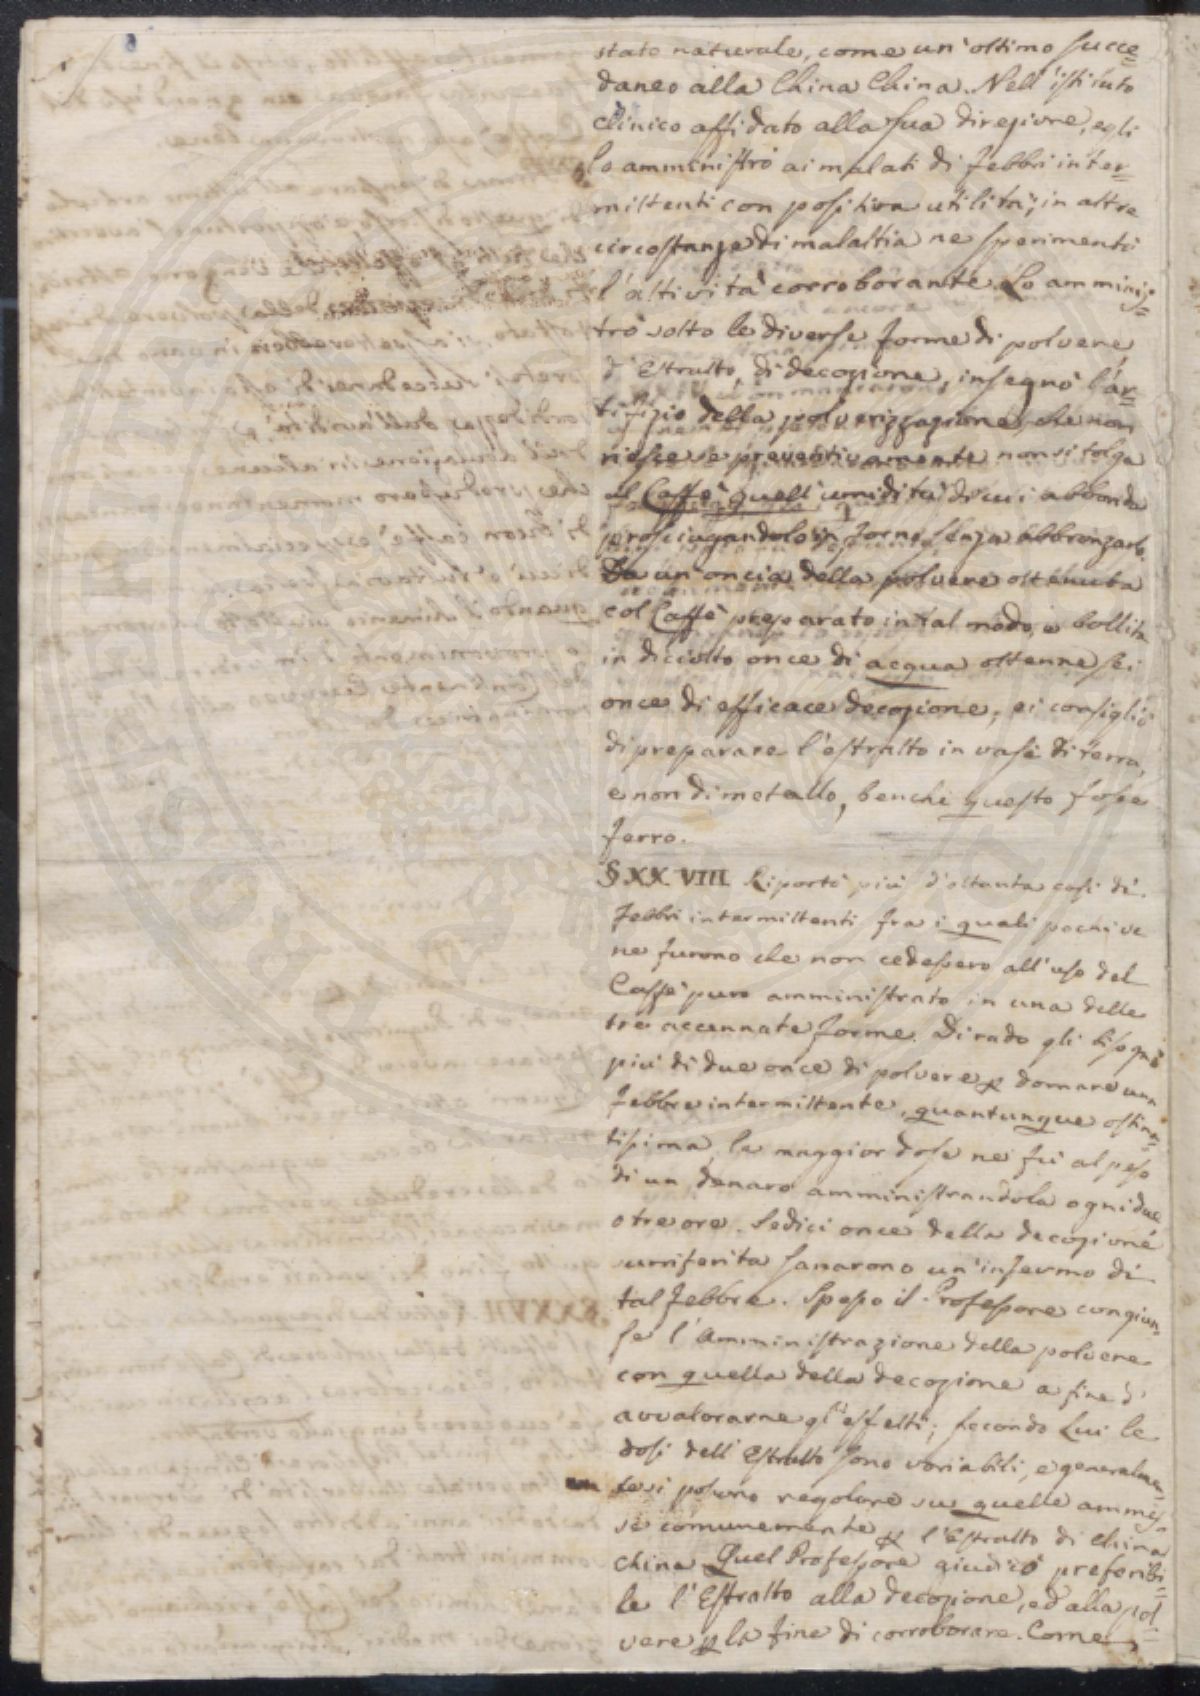 stato naturale, come un'oltimo succe=
daneo alla China China. Nell'istituto
clinico affidato alla sua direzione, egli
lo amministrò ai malati di febbri inter=
mittenti con positiva utilità; in altre
circostanze di malattia ne sperimentò
l'attività corroborante. Lo amminis=
trò sotto le diverse forme di polvere
d'Estratto, di decozione, insegnò l'ar=
tifizio della polverizzazione, che non
riesce se preventivamente non si tolga
al Caffè quell'umidità di cui abbonda
prosciugandolo in forno senza abbronzarlo.
Da un'oncia della polvere ottenuta
col Caffè preparato in tal modo, e bollita
in diciotto once di acqua ottenne sei
once di efficace decozione, ei consigliò
di preparare l'estratto in vasi di terra,
e non di metallo, benchè questo fosse
ferro.
§XXVIII Riportò più d'ottanta casi di
febbri intermittenti fra i quali pochi ve
ne furono che non cedessero all'uso del
Caffè puro amministrato in una delle
tre accennate forme. Di rado gli bisognò
più di due once di polvere p domare una
febbre intermittente, quantunque ostina=
tissima, la maggior dose ne fù al peso
di un denaro amministrandola ogni due
o tre ore. Sedici once della decozione
surriferita sanarono un'infermo di
tal febbre. Spesso il Professore congiun=
se l'Amministrazione della polvere
con quella della decozione a fine d'
avvalorarne gli effetti; secondo Lui le
dosi dell'Estratto sono variabili, e generalmen=
te si possono regolare su quelle ammes=
se comunemente p l'Estratto di China
China Quel Professore giudicò preferibi=
le l'Estratto alla decozione, ed alla pol=
vere p la fine di corroborare. Come